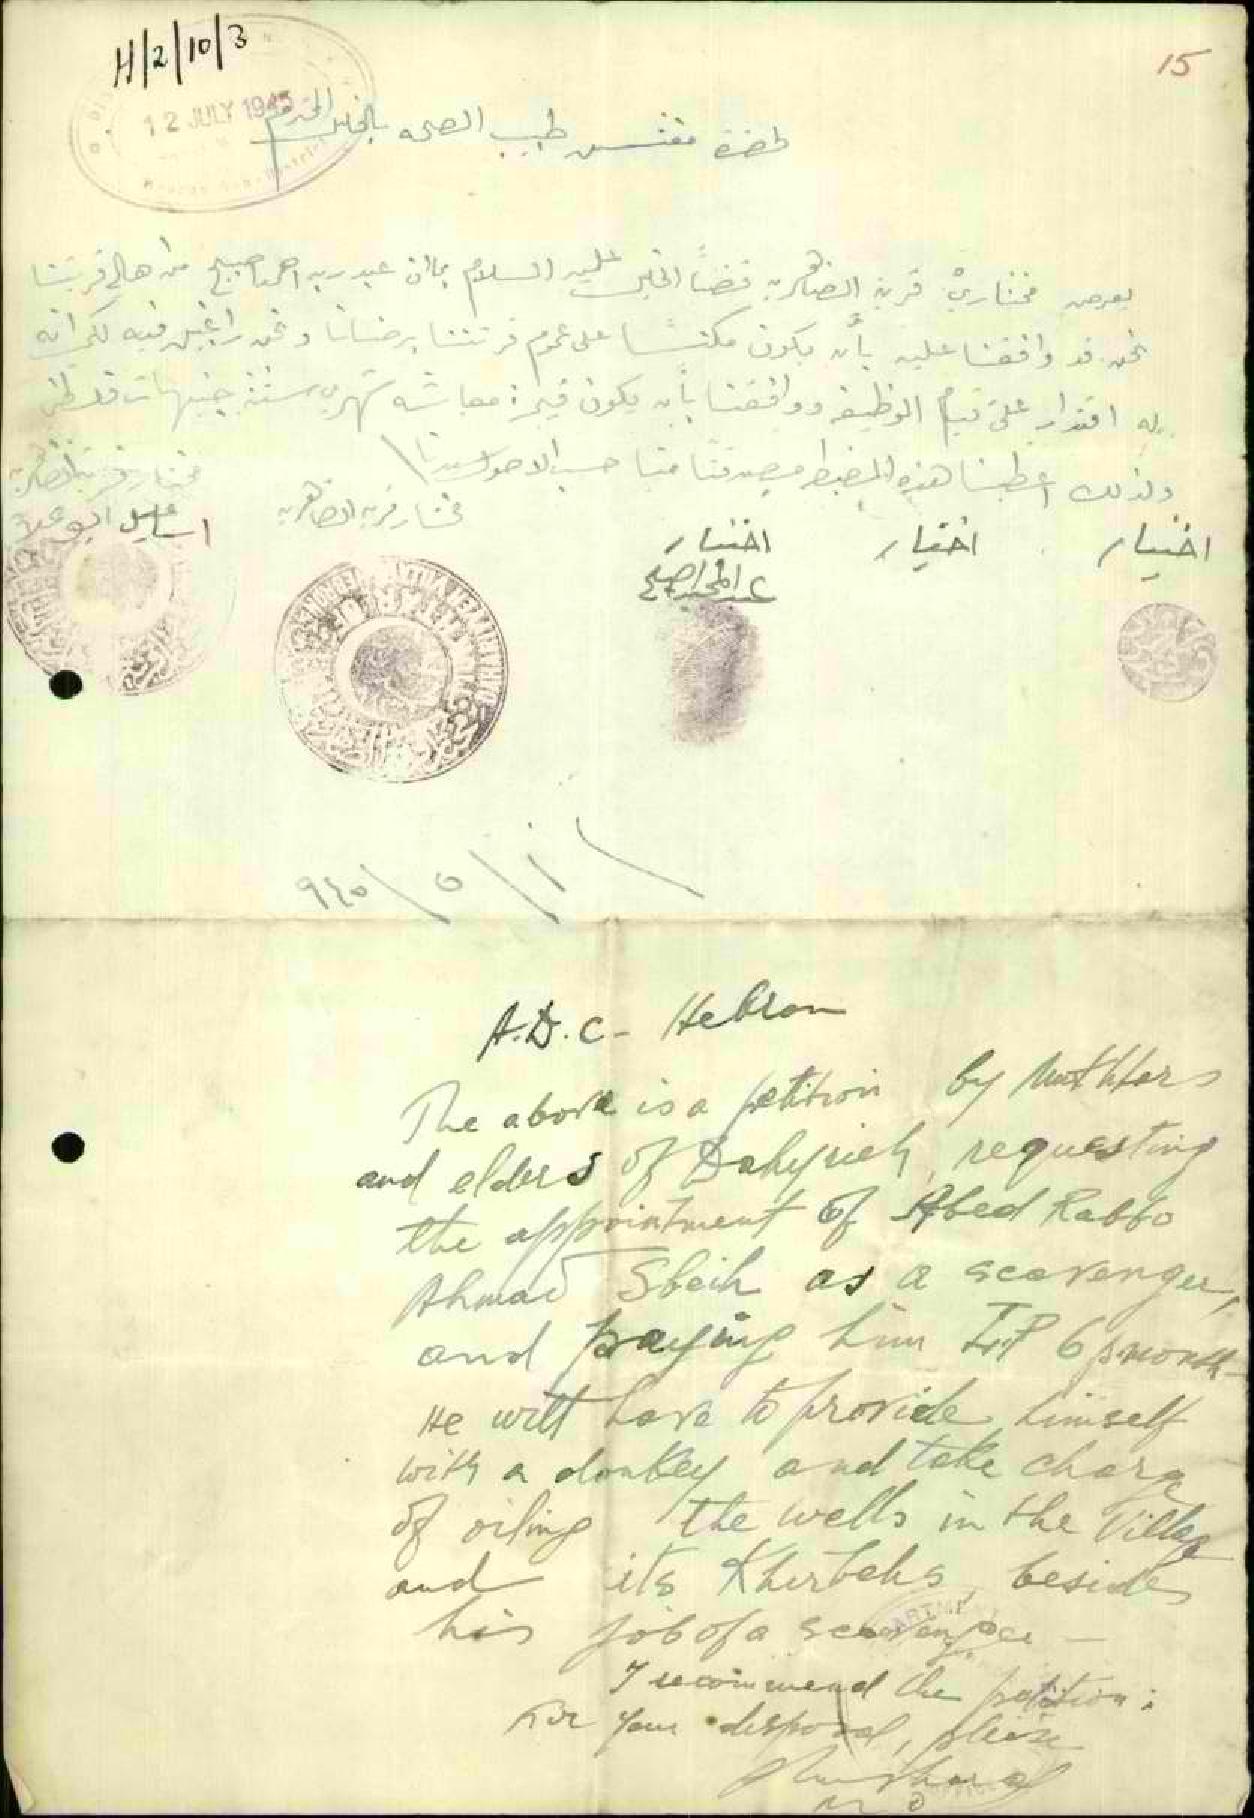 H/2/10/3
15
12 JULY 1945
لحضرة مفتش طبيب الصحه بالخليل المحترم
يعرض مختارين قرية الضاهريه قضاً الخليل عليه السلام بمان عبد ربه احمد اصبيح من اهالي قريتنا
نحن قد وافقنا عليه بأن يكون مكنساً على عموم قريتنا برضانا ونحن راغبين فيه لكي انه
له اقتدار على قيام الوظيفه ووافقنا بأن يكون قيمة معاشه شهري ستة جنيهات فلسطيني
ولذلك اعطينا هذه المضبطه مصدقتاً منا حسب الاصول سيدنا
مختار قرية الضاهريه
مختار قرية الضاهريه
اسماعيل ابو
اختيار
اختيار
اختيار
٩٤٥/٥/١
A.D.C - Hebron
The above is a petition by Mukhtars
and elders of Dahyrieh, requesting
the appointment of Abed Rabbo
Ahmad Sbeih as a scavenger,
and paying him LP 6 p month
He will have to provide himself
with a donkey and take charge
of oiling the wells in the Village
and its Khirbehs, besides
his job of a scavenger -
I recommend the petition;
For your disposal, please
M.O